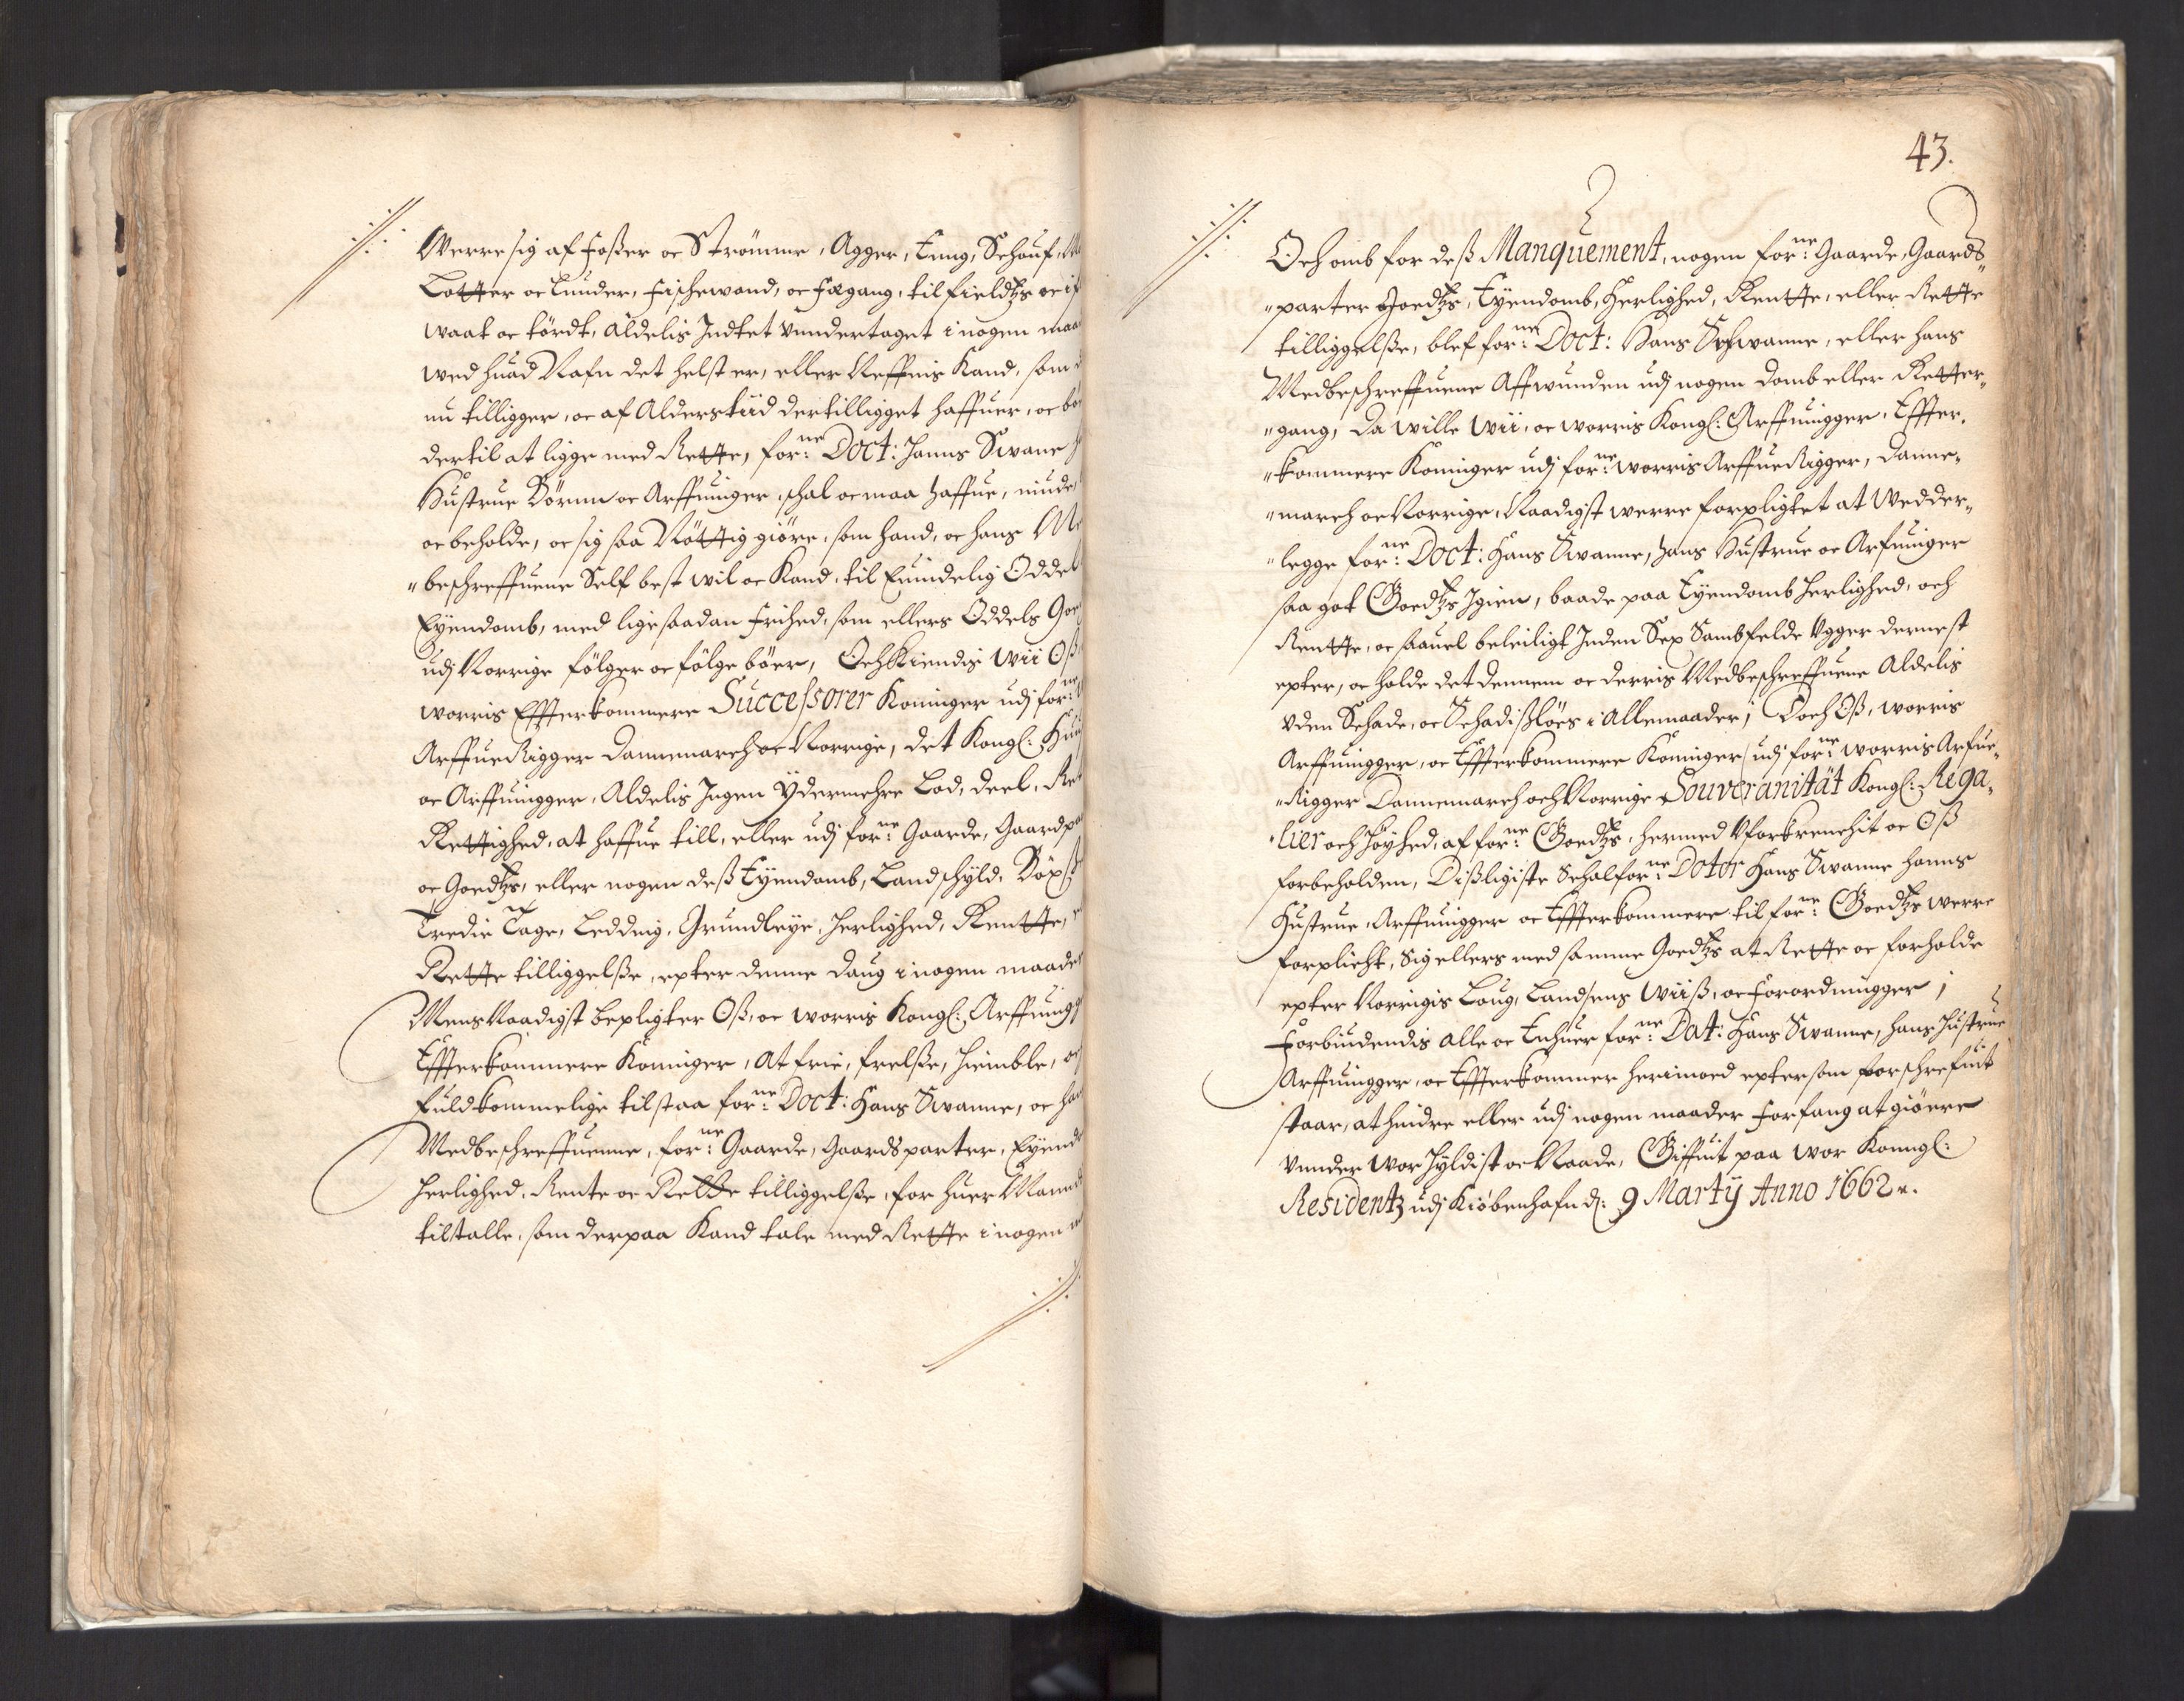 Werre sig af Foßer oc Strömme, Agger, Enng, Schouf,
Lotter oc Lunder, Fischewand, oc Fægang, til Fieldtzs oc
waat oc tördt, Aldelis Indtet Vundertaget i nogen
wed huad Nafn det helst er, eller Neffnis Kand, som
nu tilligger, oc af Alderstiid dertilligget haffuer, oc
dertil at ligge med Rette, forne: Doct: Hanns Swane
Hustrue Börnn oc Arffuinger, schal oc maa haffue, niude,
oc beholde, oc sig saa Nöttig giöre, som hand, oc hans
beschreffuene Self best wil oc Kand, til Euindelig
Eyendomb, med lige saadan Frihed, som ellers Oddels
udj Norrige fölger oc fölge böer, Och Kiendis Wii
worris Effterkommere Successorer Koninger udj forne:
ArffueRigger Dannemarch oc Norrige, det Kongl:
oc Arffuingger, Aldelis Ingen Ydermehre Lod, deel,
Rettighed, at haffue till, eller udj forne: Gaarde,
oc Goedtzs, eller nogen deß Eyendomb, Landschyld,
Tredie Tage, Ledding, Grundleye, Herlighed, Rentte,
Rette tilliggelße, epter denne Daug i nogen maader
Mens Naadigst bepligter Oß, oc worris Kongl: Arffuingg
Effterkommere Koninger, At frie, frelße, Hiemble,
fuldkommelige tilstaa forne: Doct: Hans Swanne, oc
Medbeschreffuenne, forne: Gaarde, Gaardsparter,
Herlighed, Rente oc Rette tilliggelße, for huer
tiltalle, som derpaa Kand tale med Rette i nogen
43.
Och omb for deß Manquement, nogen forne: Gaarde, Gaards
parter Goedtzs, Eyendomb, Herlighed, Rentte, eller Rette
tilliggelße, blef forne: Doct: Hans Schwanne, eller hans
Medbeschreffuene Affwunden udj nogen domb eller Retter
gang, Da wille wii, oc worris Kongl: Arffuingger, Effter
kommere Koninger udj forne: worris ArffueRigger, Danne
march oc Norrige, Naadigst werre forpligtet at Wedder
legge forne: Doct: Hans Swanne, hans Hustrue oc Arfuinger
saa got Goedtzs Igien, baade paa Eyendomb Herlighed, och
Rentte, oc saauel beleiligt Inden Sex Sambfelde Vgger dernest
epter, oc holde det dennem oc derris Medbeschreffuene Aldelis
vden Schade, oc Schadißlöes i Allemaader; Doch Oß, worris
Arffuingger, oc Effterkommere Koninger udj forne: worris Arfue
Rigger Dannemarch och Norrige Souveranität Kongl: Rega
lier och Höyhed, af forne: Goedtzs, hermed Vforkrenchit oc Oß
forbeholden, Dißligiste Schal forne: Dotor Hans Swanne hanns
Hustrue, Arffuingger oc Effterkommere til forne: Goedtzs werre
forplicht, Sig ellers med samme Goedtzs at Rette oc forholde
epter Norrigis Loug, Landsens Wiiß, oc Forordningger;
Forbiudendis alle oc Enhuer forne: Dot: Hans Swanne, hans Hustrue
Arffuingger, oc Effterkommer herimoed eptersom forschrefuit
staar, at hindre eller udj nogen maader Forfang at giöere
Vunder Wor Hyldist oc Naade, Giffuit paa Wor Konngl:
Residentz udj Kiöbenhafn d: 9 Martij Anno 1662.